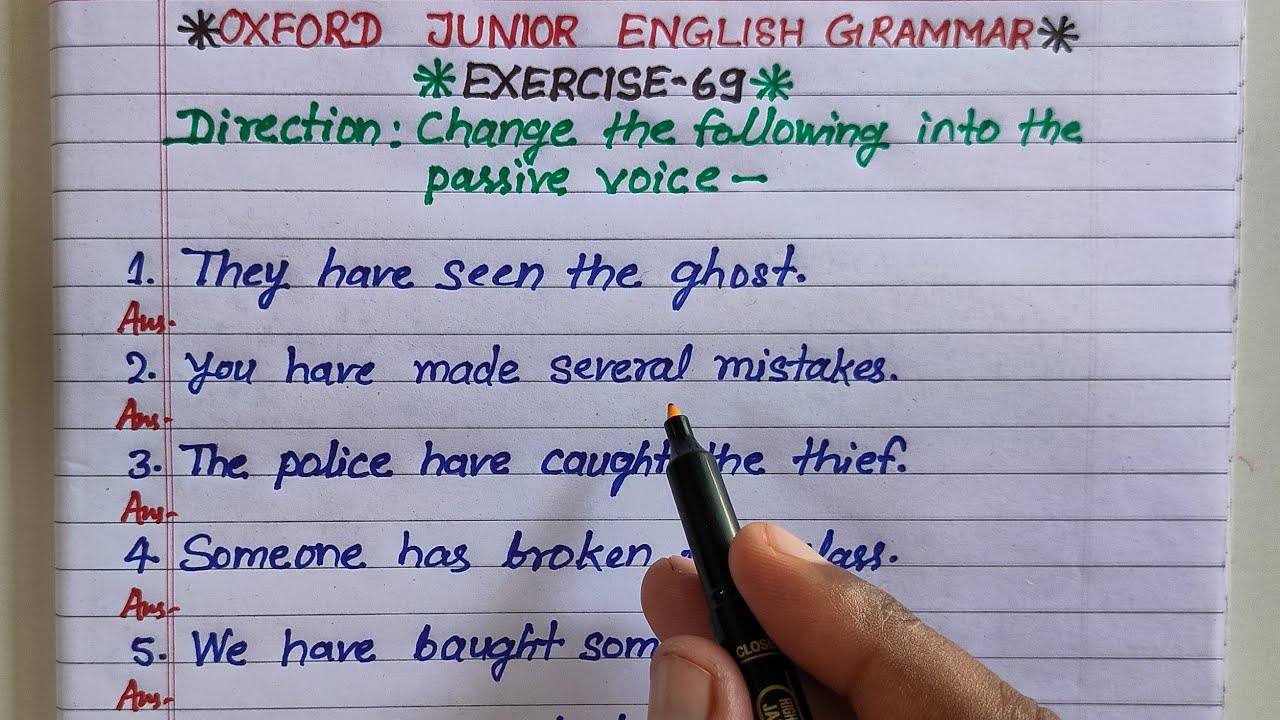 *OXFORD JUNIOR ENGLISH GRAMMAR*
*EXERCISE-69*
Direction: Change the following into the
passive voice-
1. They have seen the ghost.
Ans-
2. You have made several mistakes.
Ans-
3. The police have caught the thief.
Ans-
4. Someone has broken
Ans-
5. We have baught som
Ans-
CLOSE
HIGH
JA